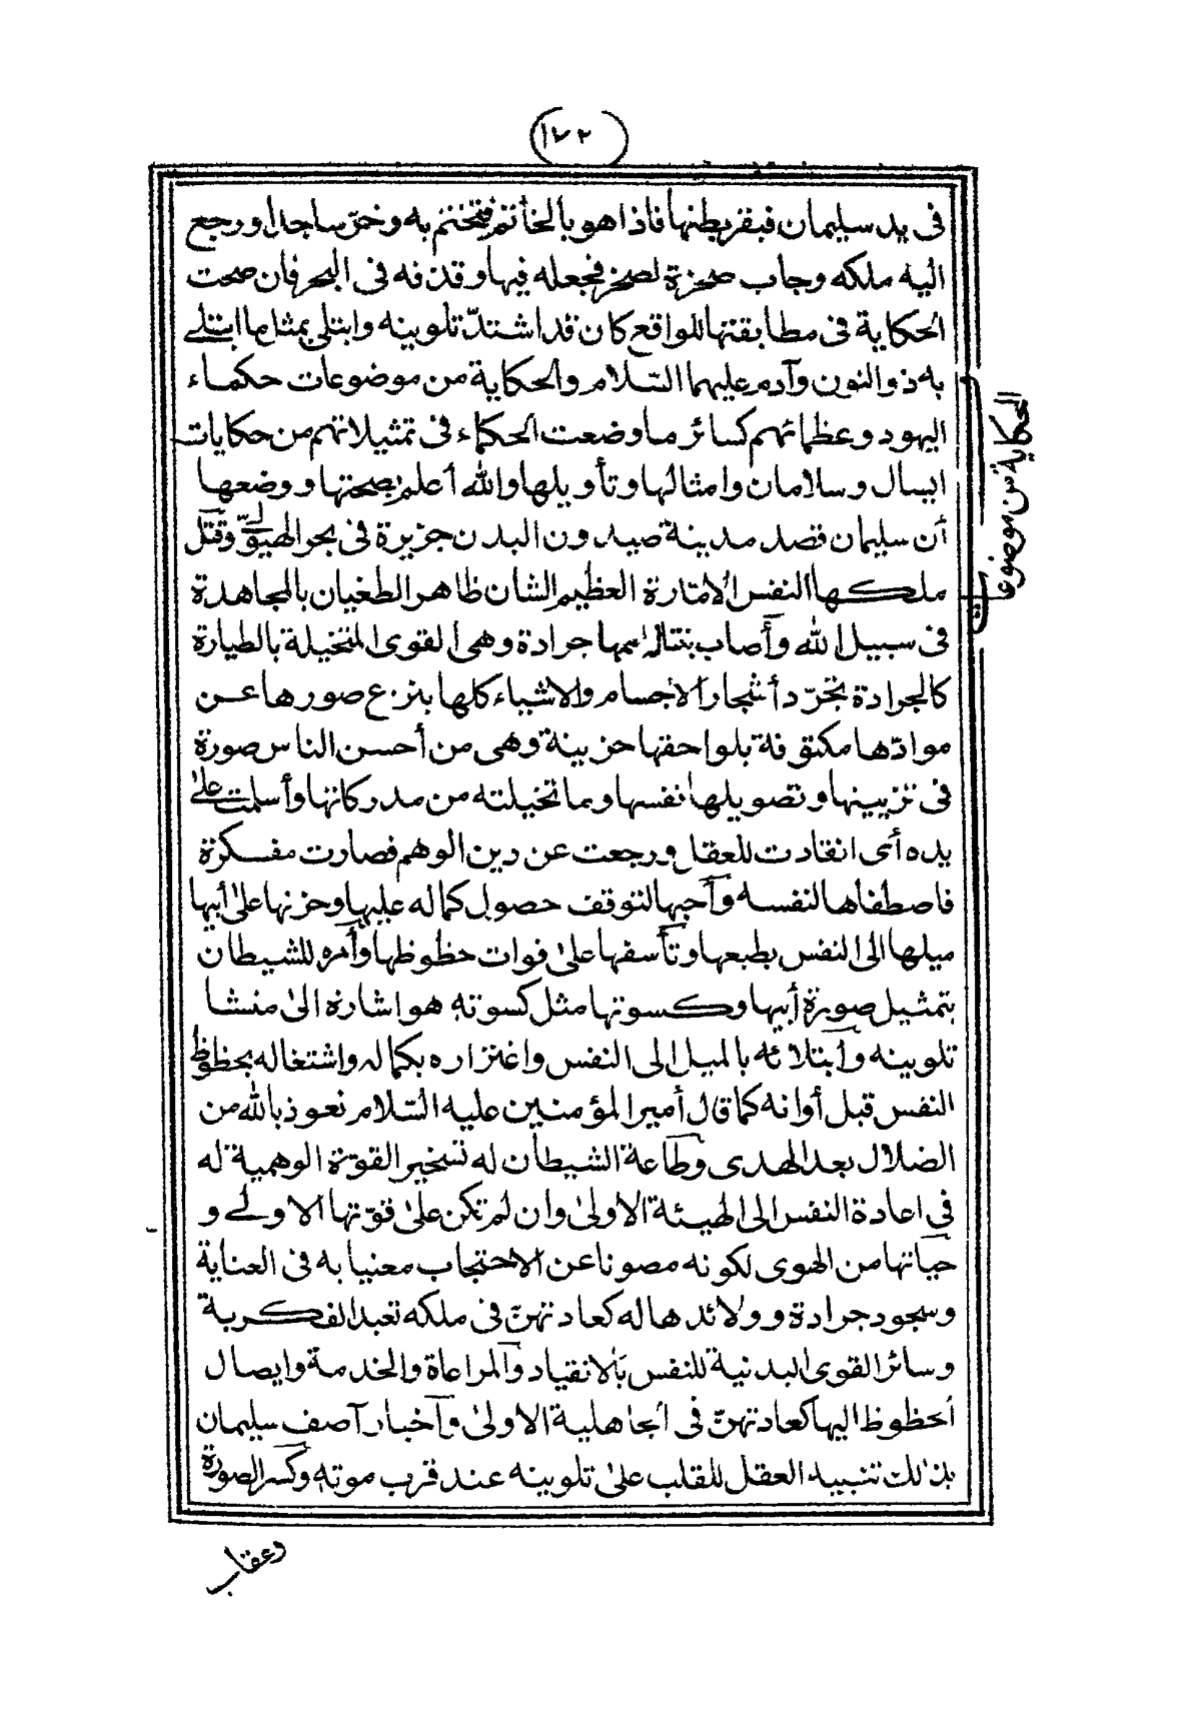 ١٧٢
فى يد سليمان فبقر بطنها فاذا هو بالخاتم فتختم به وخرّ ساجدا ورجع
اليه ملكه وجاب صخرة لصخر فجعله فيها وقذفه فى البحر فان صحت
الحكاية فى مطابقتها للواقع كان قد اشتدّ تلوينه وابتلى بمثل ما ابتلى
به ذو النون وآدم عليهما السّلام والحكاية من موضوعات حكماء
اليهود وعظمائهم كسائر ما وضعت الحكماء فى تمثيلاتهم من حكايات
ابسال وسلامان وامثالها وتأويلها والله أعلم بصحتها ووضعها
أن سليمان قصد مدينة صيدون البدن جزيرة فى بحر الهيولىّ وقتل
ملكها النفس الامّارة العظيم الشان ظاهر الطغيان بالمجاهدة
فى سبيل الله وأصاب بنتاله اسمها جرادة وهى القوى المتخيلة بالطيارة
كالجرادة تجرّد أشجار الاجسام والاشياء كلها بنزع صورها عن
موادّها مكتوفة بلواحقها حزينة وهى من أحسن الناس صورة
فى تزيينها وتصويلها نفسها وما تخيلته من مدركاتها وأسلمت على
يده أى انقادت للعقل ورجعت عن دين الوهم فصارت مفكرة
فاصطفاها لنفسه وأحبها لتوقف حصول كماله عليها وحزنها على أبيها
ميلها الى النفس بطبعها وتأسفها على فوات حظوظها وأمره للشيطان
بتمثيل صورة أبيها وكسوتها مثل كسوته هو اشارة الى منشا
تلوينه وابتلائه بالميل الى النفس واغتراره بكماله واشتغاله بحظوظ
النفس قبل أوانه كما قال أمير المؤمنين عليه السّلام نعوذ بالله من
الضلال بعد الهدى وطاعة الشيطان له تسخير القوّة الوهمية له
فى اعادة النفس الى الهيئة الاولى وان لم تكن على قوّتها الاولى و
حياتها من الهوى لكونه مصونا عن الاحتجاب معنيا به فى العناية
وسجود جرادة وولائدها له كعادتهنّ فى ملكه تعبد الفكرية
وسائر القوى البدنية للنفس بالانقياد والمراعاة والخدمة وايصال
الحظوظ اليها كعادتهنّ فى الجاهلية الاولى وأخبار آصف سليمان
بذلك تنبيه العقل للقلب على تلوينه عند قرب موته وكسر الصورة
وعقاب
الحكاية من موضوعات